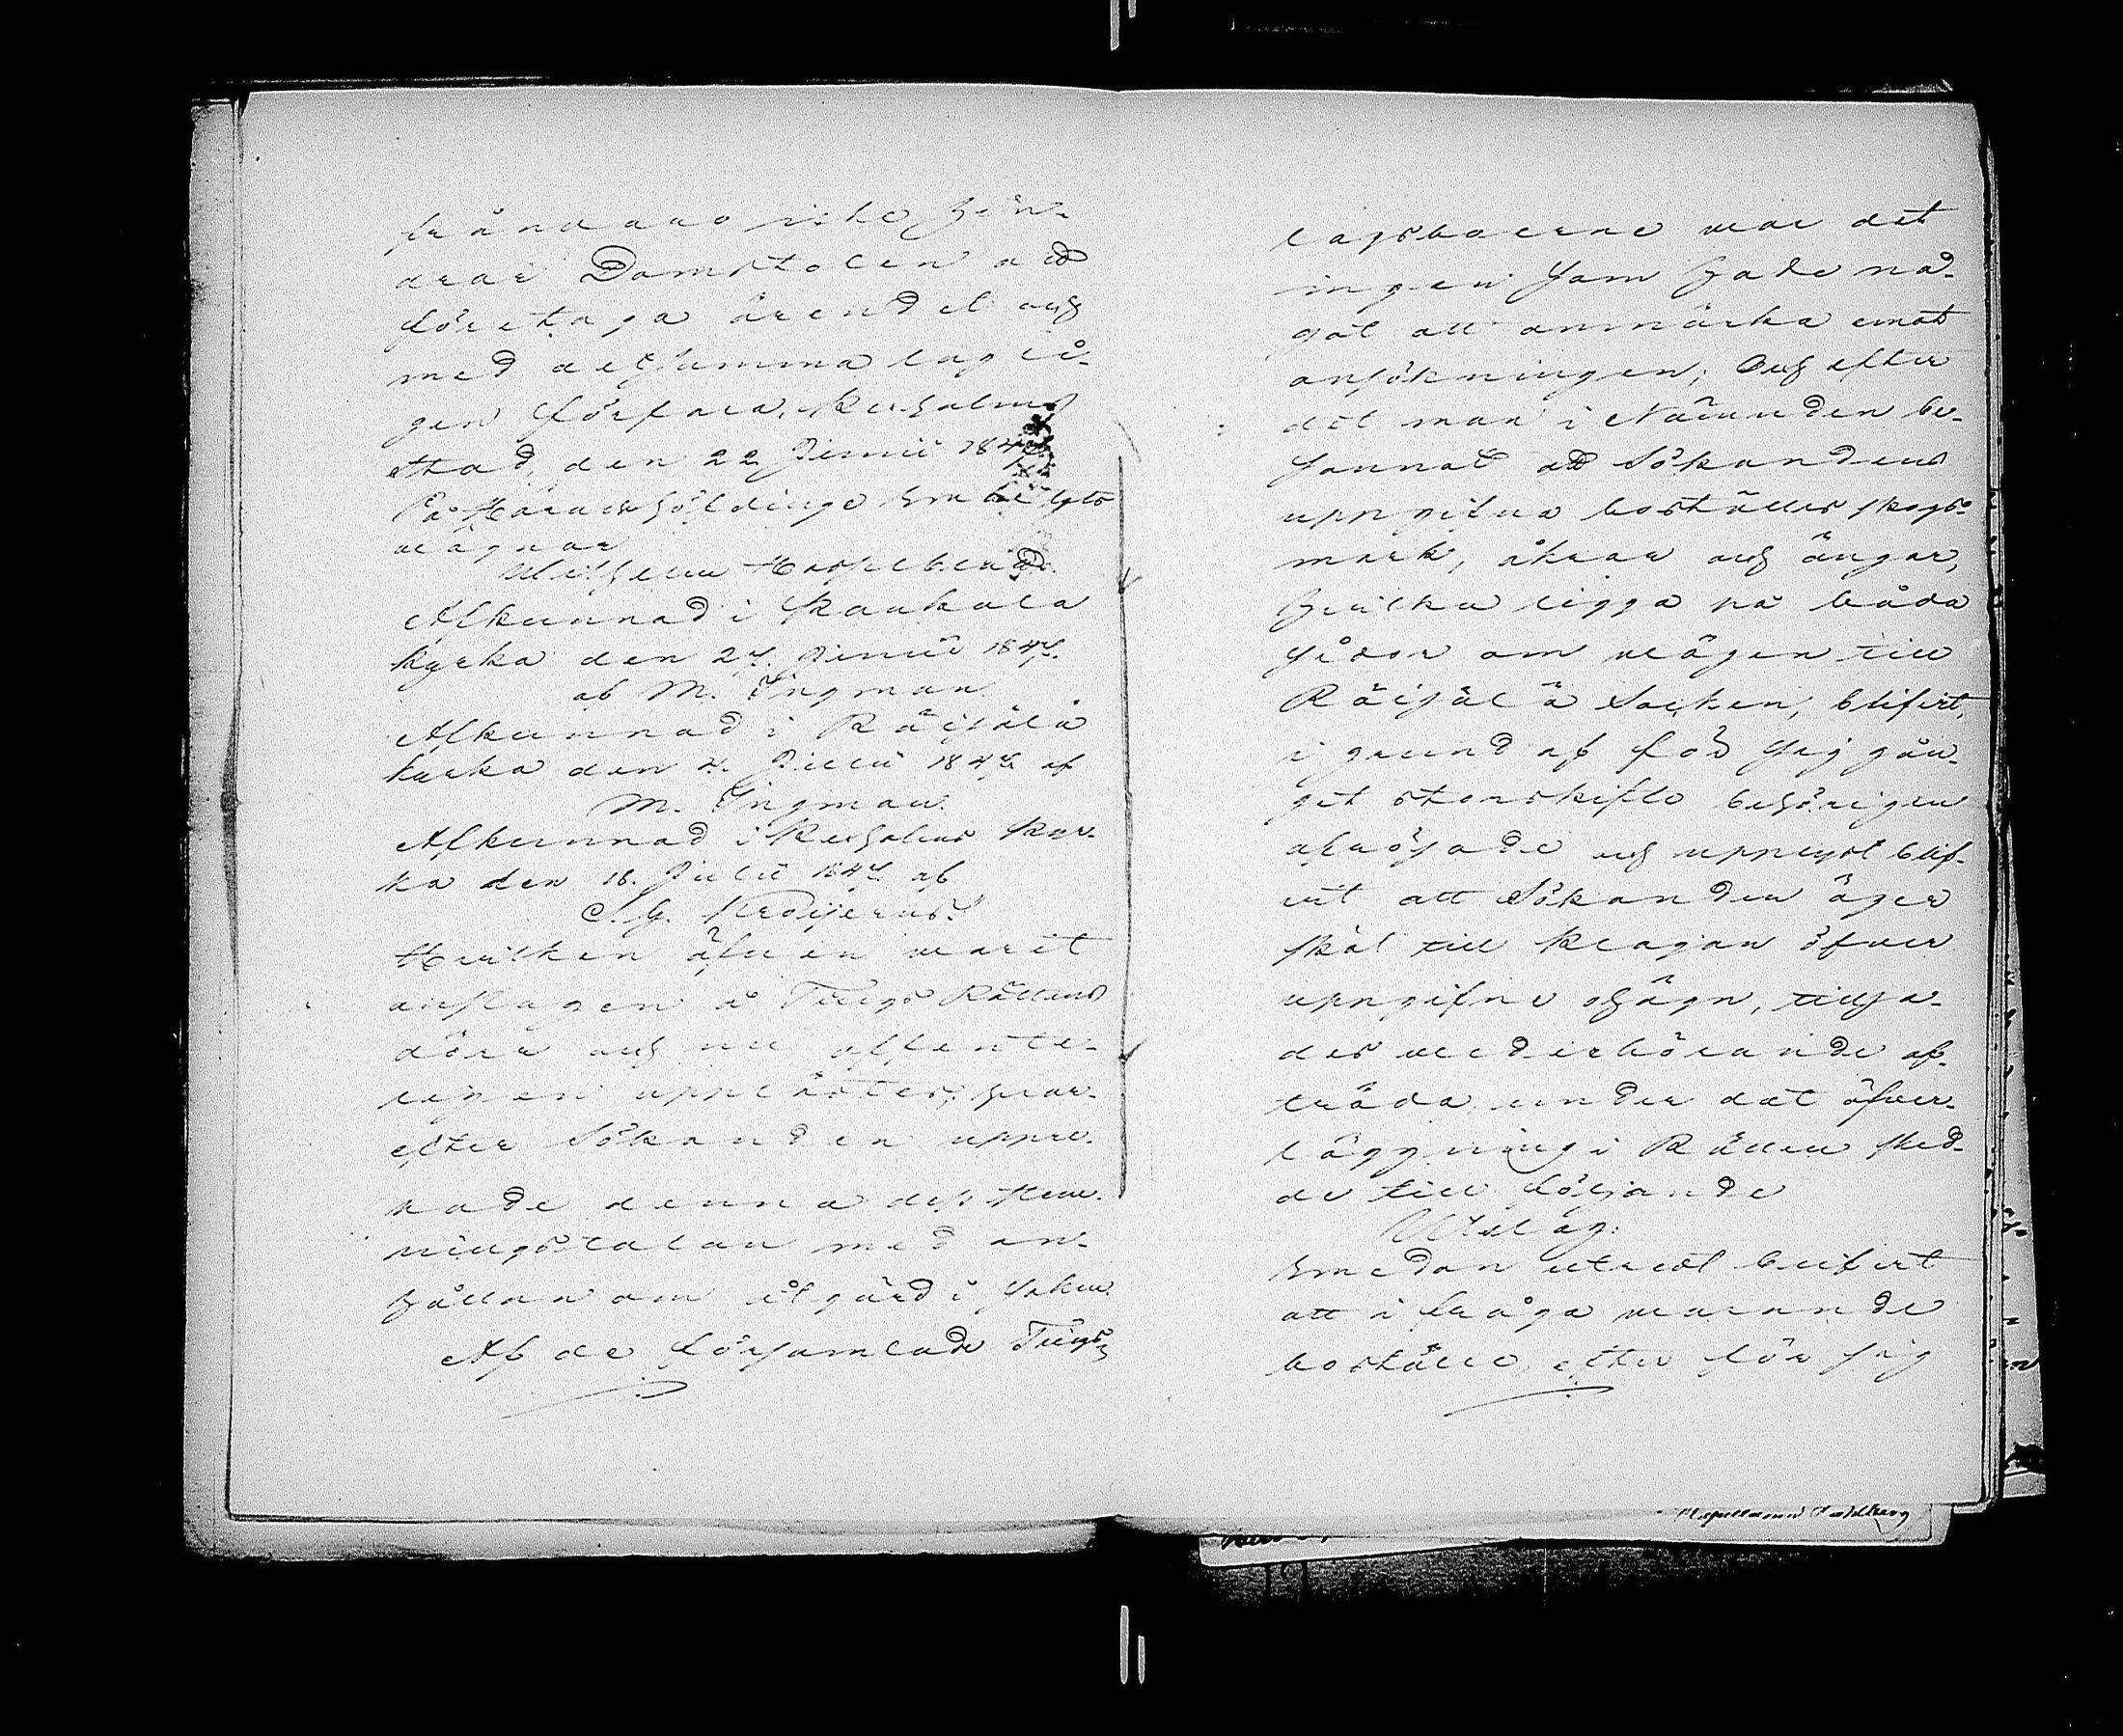 frånvaro icke hin-
drar Domstolen att
företaga ärendet och
med detsamma lagli-
gen förfara. Kexholms
stad, den 22 Junii 1847.
På Häradshöfdinge Embetets
vägnar
Wilhelm
Afkunnad i Kaukola
kyrka den 27. Junii 1847.
af M. Ingman
Afkunnad i Räisälä
kyrka den 4. Julii 1847 af
M. Ingman.
Afkunnad i Kexholms kyr-
ka den 18. Julii 1847 af
Hvilken äfven varit
anslagen å Tings Rättens
dörr och nu offente-
ligen upplästes; hvar-
efter Sökanden uppre-
pade denna dess stem-
ningstalan med an-
hållan om åtgärd i saken.
Af de församlade Tings
lagsboerne var det
ingen som hade nå-
got att anmärka emot
ansökningen; Och efter
det man i Nämnden be-
sannat att Sökandens
uppgifna boställes skogs-
mark, åkrar och ängar,
hvilka ligga på båda
sidor om vägen till
Räisälä Socken, blifvit,
i grund af för sig gån-
get storskifte behörigen
afrösade och upplyst blif-
vit att Sökanden äger
skäl till klagan öfver
uppgifne ohägn, tillsa-
des vederbörande af-
träda, under det öfver-
läggning i Rätten sked-
de till följande
Utslag:
Emedan utredt blifvit
att i fråga varande
boställe, efter för sig